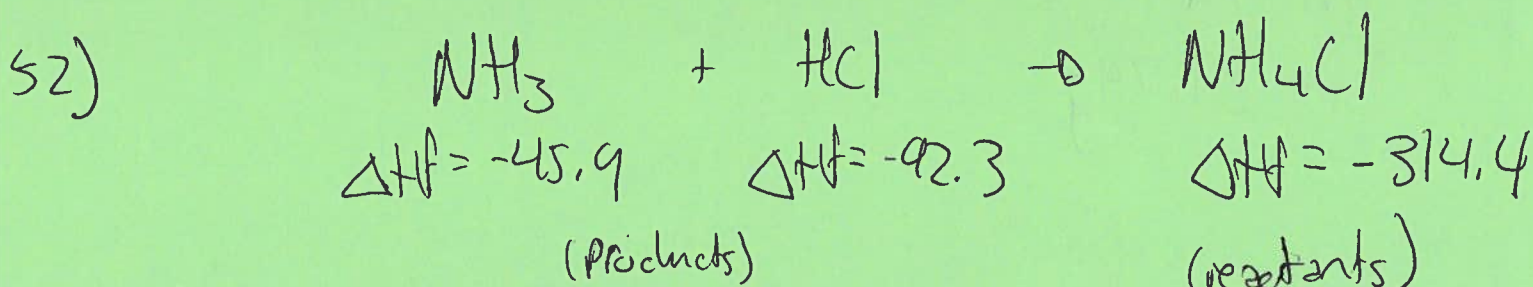 52) NH₃ + HCl → NH₄Cl
ΔHf = -45.9 ΔHf = -92.3 ΔHf = -314.4
(Products) (reactants)